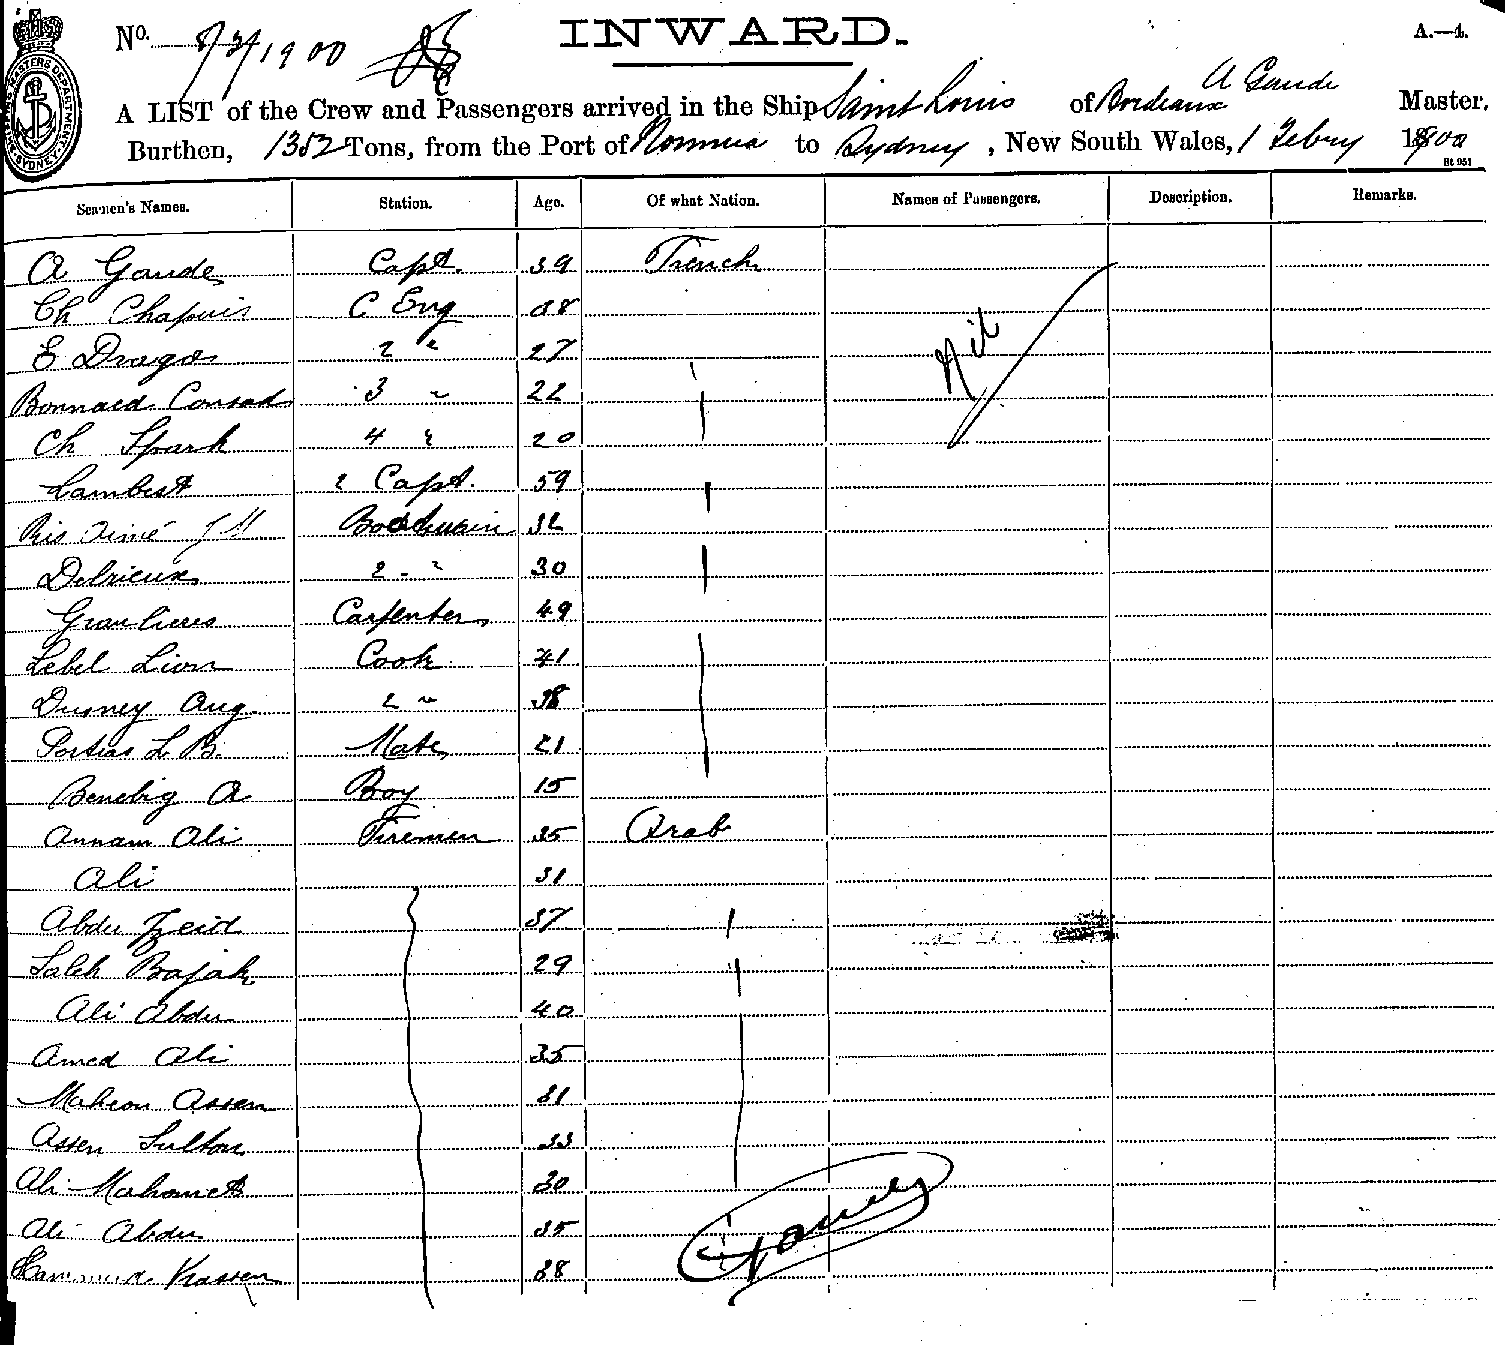 No. 5/2/1900
INWARD.
A.—4.
SHIPPING MASTERS DEPARTMENT SYDNEY
A LIST of the Crew and Passengers arrived in the Ship Saint Louis of Bordeaux A Gaude Master,
Burthen, 1352 Tons, from the Port of Noumea to Sydney, New South Wales, 1 Febry 1900
Seamen's Names. Station. Age. Of what Nation. Names of Passengers. Description. Remarks.
A Gaude Capt. 39 French
Ch Chapuis C Eng 38
E Drago 2 " 27 Nil
Bonnard Conrad 3 " 22
Ch Spark 4 " 20
Lambert 2 Capt. 59
J M 32
Delrieux 2 - " 30
Carpenter 49
Lebel Lion Cook 41
Dusney Aug. 2 " 38
L. B. Mate 21
Benebig A Boy 15
Annam Ali Firemen 35 Arab
Ali 31
Abdu Zeid 37
Saleh Bajah 29
Ali Abdu 40
Amed Ali 35
Maheou Assen 31
Assen Sultan 33
Ali Mahomet 30
Ali Abdu 35
Kassen 38